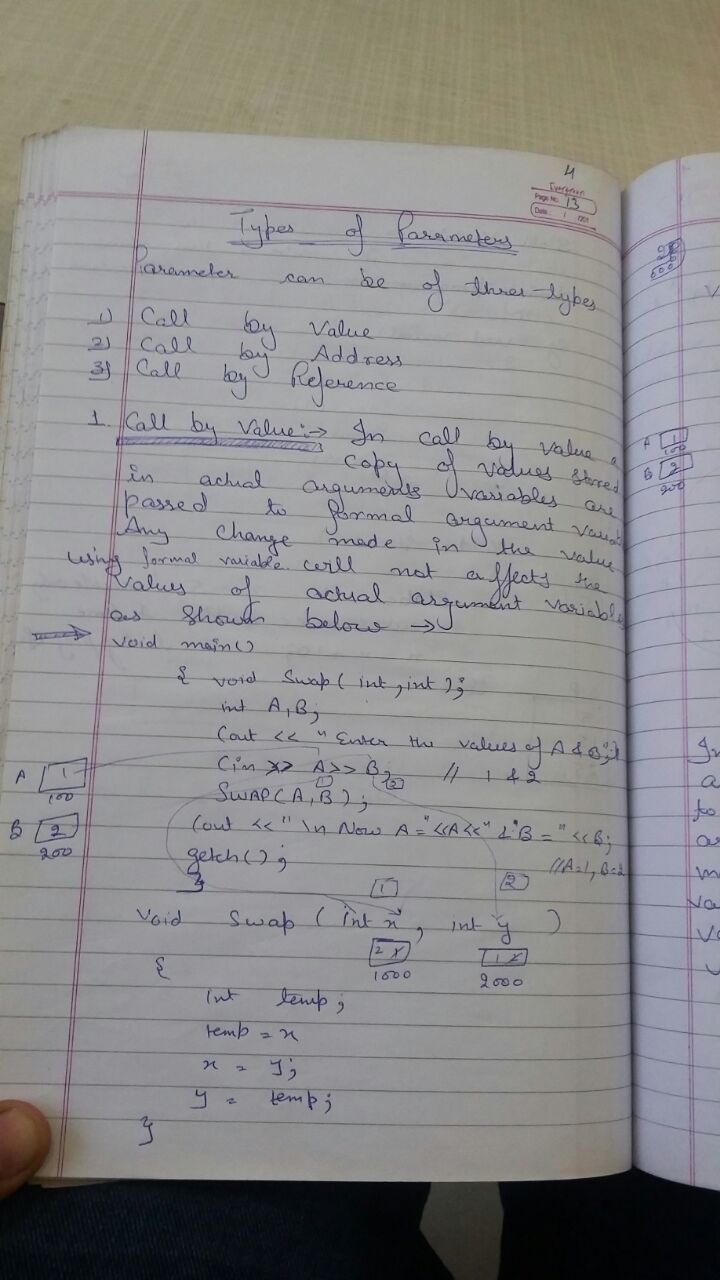 4
Evergreen
Page No. 13
Date: / /201
Types of Parameters
Parameter can be of three types
1) Call by Value
2) Call by Address
3) Call by Reference
1. Call by Value:→ In call by value a
copy of values stored
in actual arguments variables are
passed to formal argument
Any change made in the value
using formal variable will not affects the
values of actual argument variables
as shown below →
void main()
{ void Swap( int, int );
int A, B;
Cout << "Enter the values of A & B";
Cin >> A >> B; // 1 & 2
1 2
A 1
100
SWAP(A, B);
B 2
200
Cout <<" \n Now A="<<A<<" & B = " <<B;
getch(); //A=1, B=2
}
1 2
Void Swap ( int x, int y )
2 1 1 2
1000 2000
{
int temp;
temp = x
x = y;
y = temp;
}
A 1
100
B 2
200
In
a
fo
m
va